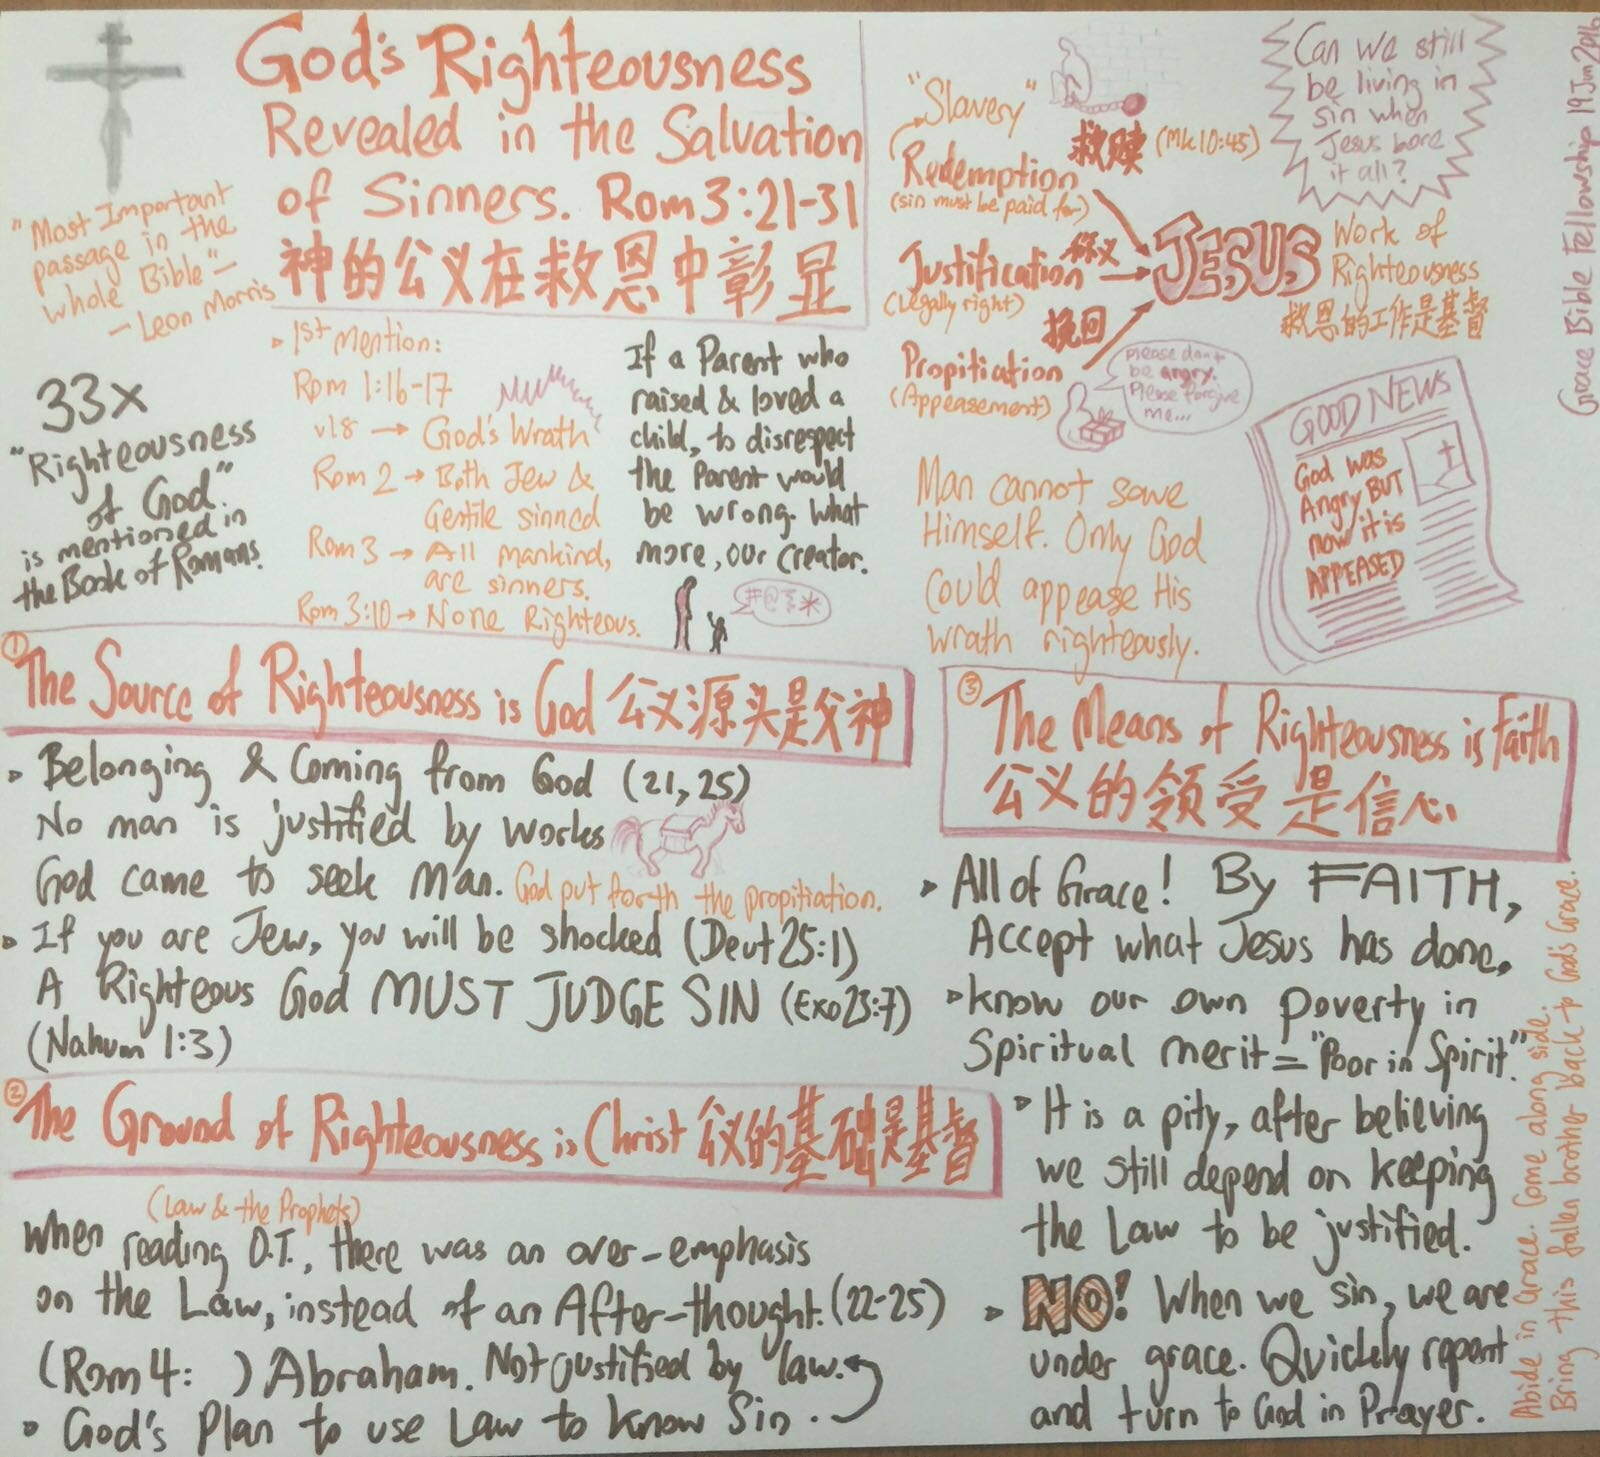 God's Righteousness
Revealed in the Salvation
of Sinners. Rom 3:21-31
神的公义在救恩中彰显
"Most Important
passage in the
whole Bible" —
— Leon Morris
33x
"Righteousness
of God"
is mentioned in
the Book of Romans.
1st Mention:
Rom 1:16-17
v18 → God's Wrath
Rom 2 → Both Jew &
Gentile sinned
Rom 3 → All mankind,
are sinners.
Rom 3:10 → None Righteous.
If a Parent who
raised & loved a
child, to disrespect
the Parent would
be wrong. What
more, our Creator.
#@%*
"Slavery"
Redemption 救赎 (Mk 10:45)
(sin must be paid for)
Justification 称义
(Legally right)
挽回
Propitiation
(Appeasement)
JESUS
Work of
Righteousness
救恩的工作是基督
Can we still
be living in
sin when
Jesus bore
it all?
Please don't
be angry.
Please forgive
me...
Man cannot save
Himself. Only God
Could appease His
wrath righteously.
GOOD NEWS
God was
Angry BUT
now it is
APPEASED
Grace Bible Fellowship 19 Jun 2016
① The Source of Righteousness is God 公义源头是父神
Belonging & Coming from God (21, 25)
No man is justified by works
God came to seek Man. God put forth the propitiation.
If you are Jew, you will be shocked (Deut 25:1)
A Righteous God MUST JUDGE SIN (Exo 23:7)
(Nahum 1:3)
② The Ground of Righteousness is Christ 公义的基础是基督
(Law & the Prophets)
When reading O.T., there was an over-emphasis
on the Law, instead of an After-thought. (22-25)
(Rom 4: ) Abraham. Not justified by law.
God's Plan to use Law to know Sin.
③ The Means of Righteousness is Faith
公义的领受是信心
All of Grace! By FAITH,
Accept what Jesus has done.
Know our own poverty in
Spiritual merit = "Poor in Spirit."
It is a pity, after believing
we still depend on keeping
the Law to be justified.
NO! When we sin, we are
under grace. Quickly repent
and turn to God in Prayer.
Abide in Grace. Come along side.
Bring this fallen brother back to God's Grace.